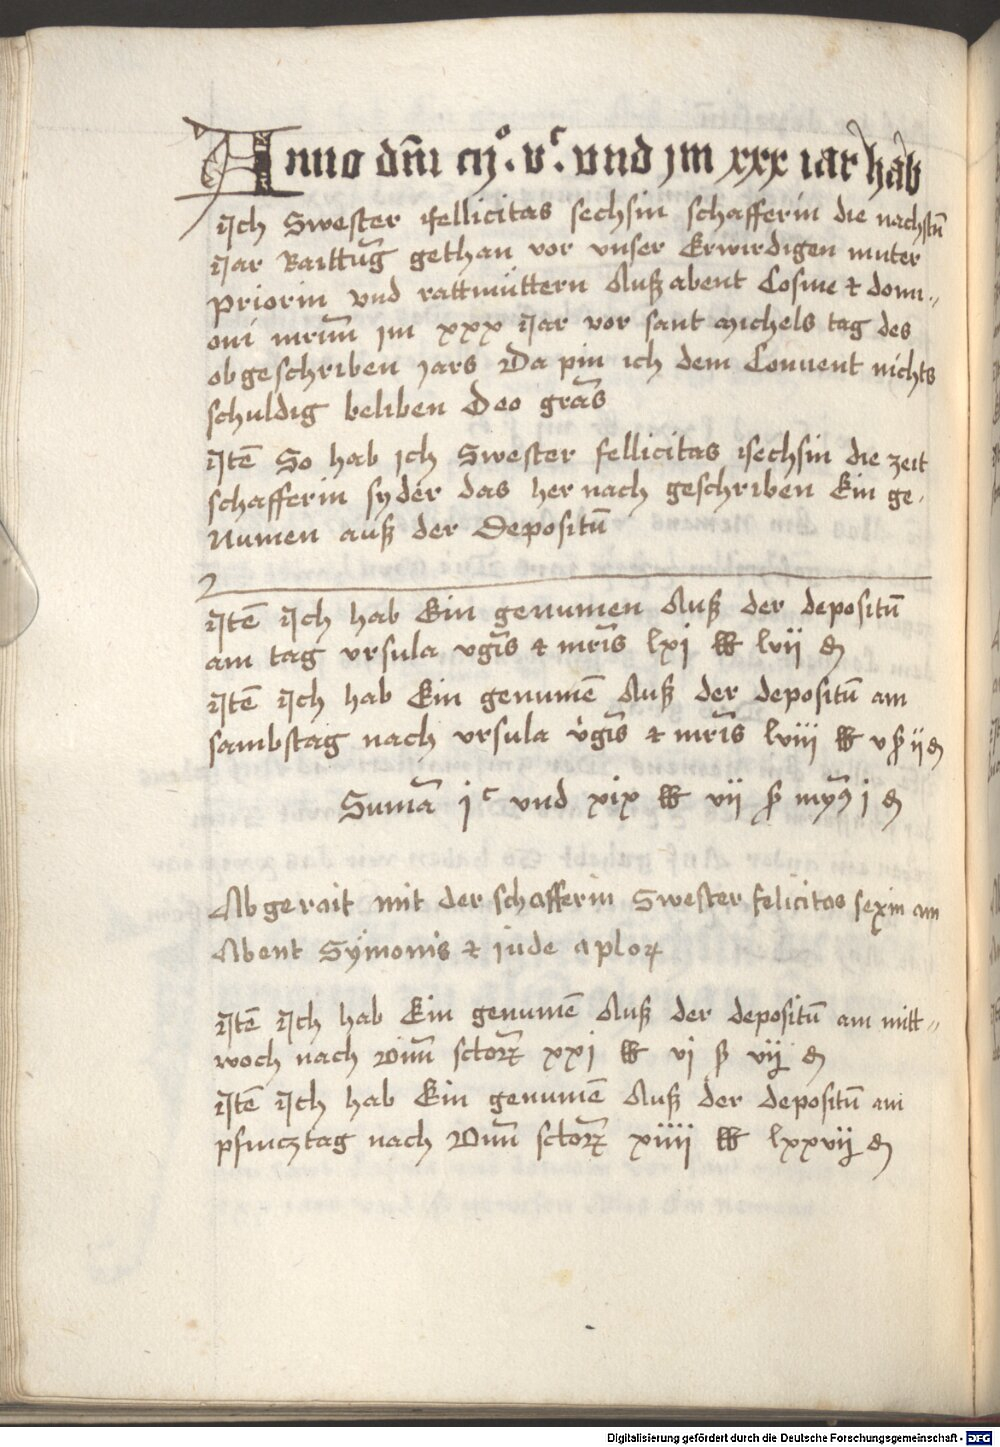 Anno dm̄ mᵒ. vᶜ. vnd jm xxx iar hab
Jch Swester fellicitas sechsin schafferin die nachstū
Jar Raittūg gethan vor vnser Erwirdigen muter
priorin vnd rattmüttern Auß abent Cosme & domi„
oni mrim̄ im xxx Jar vor sant michels tag des
obgeschriben jars Da pin ich dem Conuent nichts
schuldig beliben Deo grās
Jtē So hab ich Swester fellicitas sechsin die zeit
schafferin syder das her nach geschriben Ein ge„
Numen auß der Depositū
Jtē Jch hab Ein genumen Auß der depositū
am tag vrsula vgīs & mrīs lxj ℔ lvij ₰
Jtē Jch hab Ein genumē Auß der depositū am
sambstag nach vrsula vgīs & mrīs lviij ℔ v ß ij ₰
Sumā jᶜ vnd xix ℔ vij ß i ₰
Abgerait mit der schafferin Swester felicitas sexin am
Abent Sÿmonis & jude aplorꝝ
Jtē Jch hab Ein genumē Auß der depositū am mitt„
woch nach Om̄ sctorꝝ xxj ℔ vj ß vij ₰
Jtē Jch hab Ein genumē Auß der depositū am
pfincztag nach Om̄ sctorꝝ xiiij ℔ lxxvij ₰
Digitalisierung gefördert durch die Deutsche Forschungsgemeinschaft - DFG